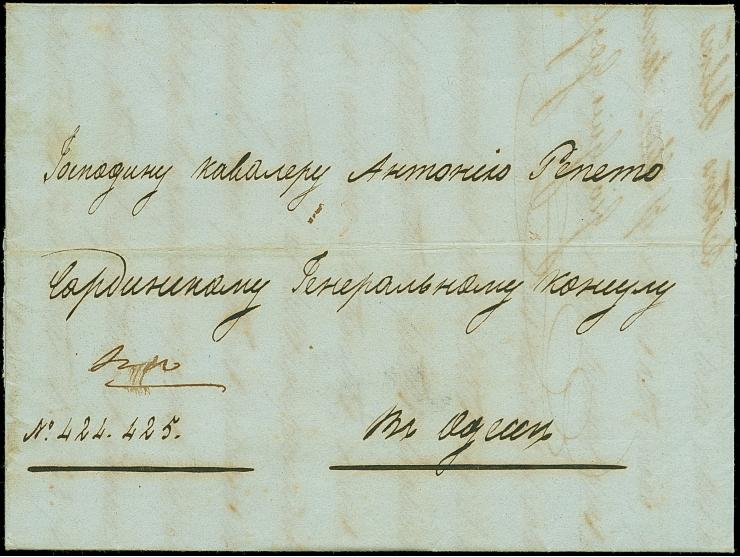 Господину кавалеру Антонію Репето
Сардинскому Генеральному консулу
№ 424. 425.
Въ Одессѣ